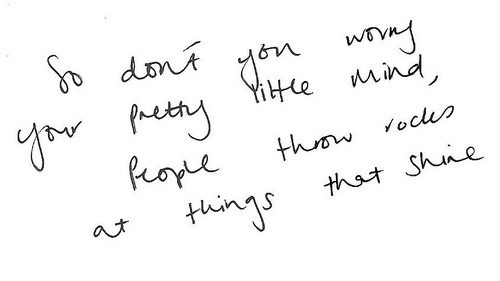 So don't you worry
your pretty little mind,
People throw rocks
at things that shine